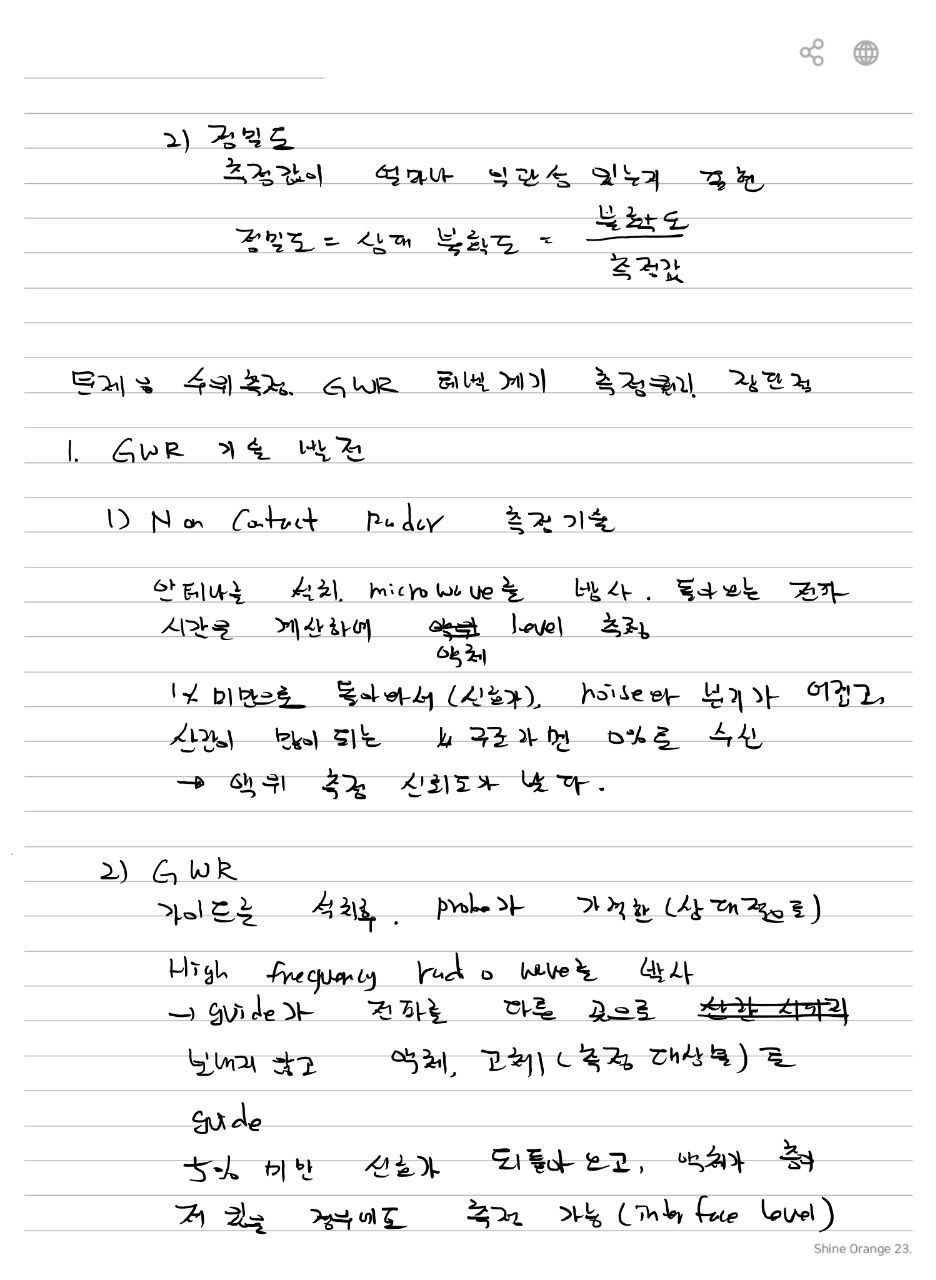 2) 정밀도
측정값이 얼마나 일관성 있는지 표현
정밀도 = 상대 불확도 = 불확도
측정값
문제 8 수위측정. GWR 레벨계기 측정원리. 장단점
1. GWR 기술 발전
1) Non Contact Radar 측정기술
안테나를 설치. microwave를 방사. 돌아오는 전자
시간을 계산하여 level 측정
액체
1% 미만으로 돌아와서(신호가), noise와 분리가 어렵고,
산란이 많이 되는 구조라면 0%로 수신
→ 액위 측정 신뢰도가 낮다.
2) GWR
가이드를 설치후. probe가 가격한(상대적으로)
High frequency radio wave를 발사
→ guide가 전파를 다른 곳으로
보내지 않고 액체, 고체(측정 대상물)로
guide
5% 미만 신호가 되돌아 오고, 액체가 층이
져 있을 경우에도 측정 가능(interface level)
Shine Orange 23.